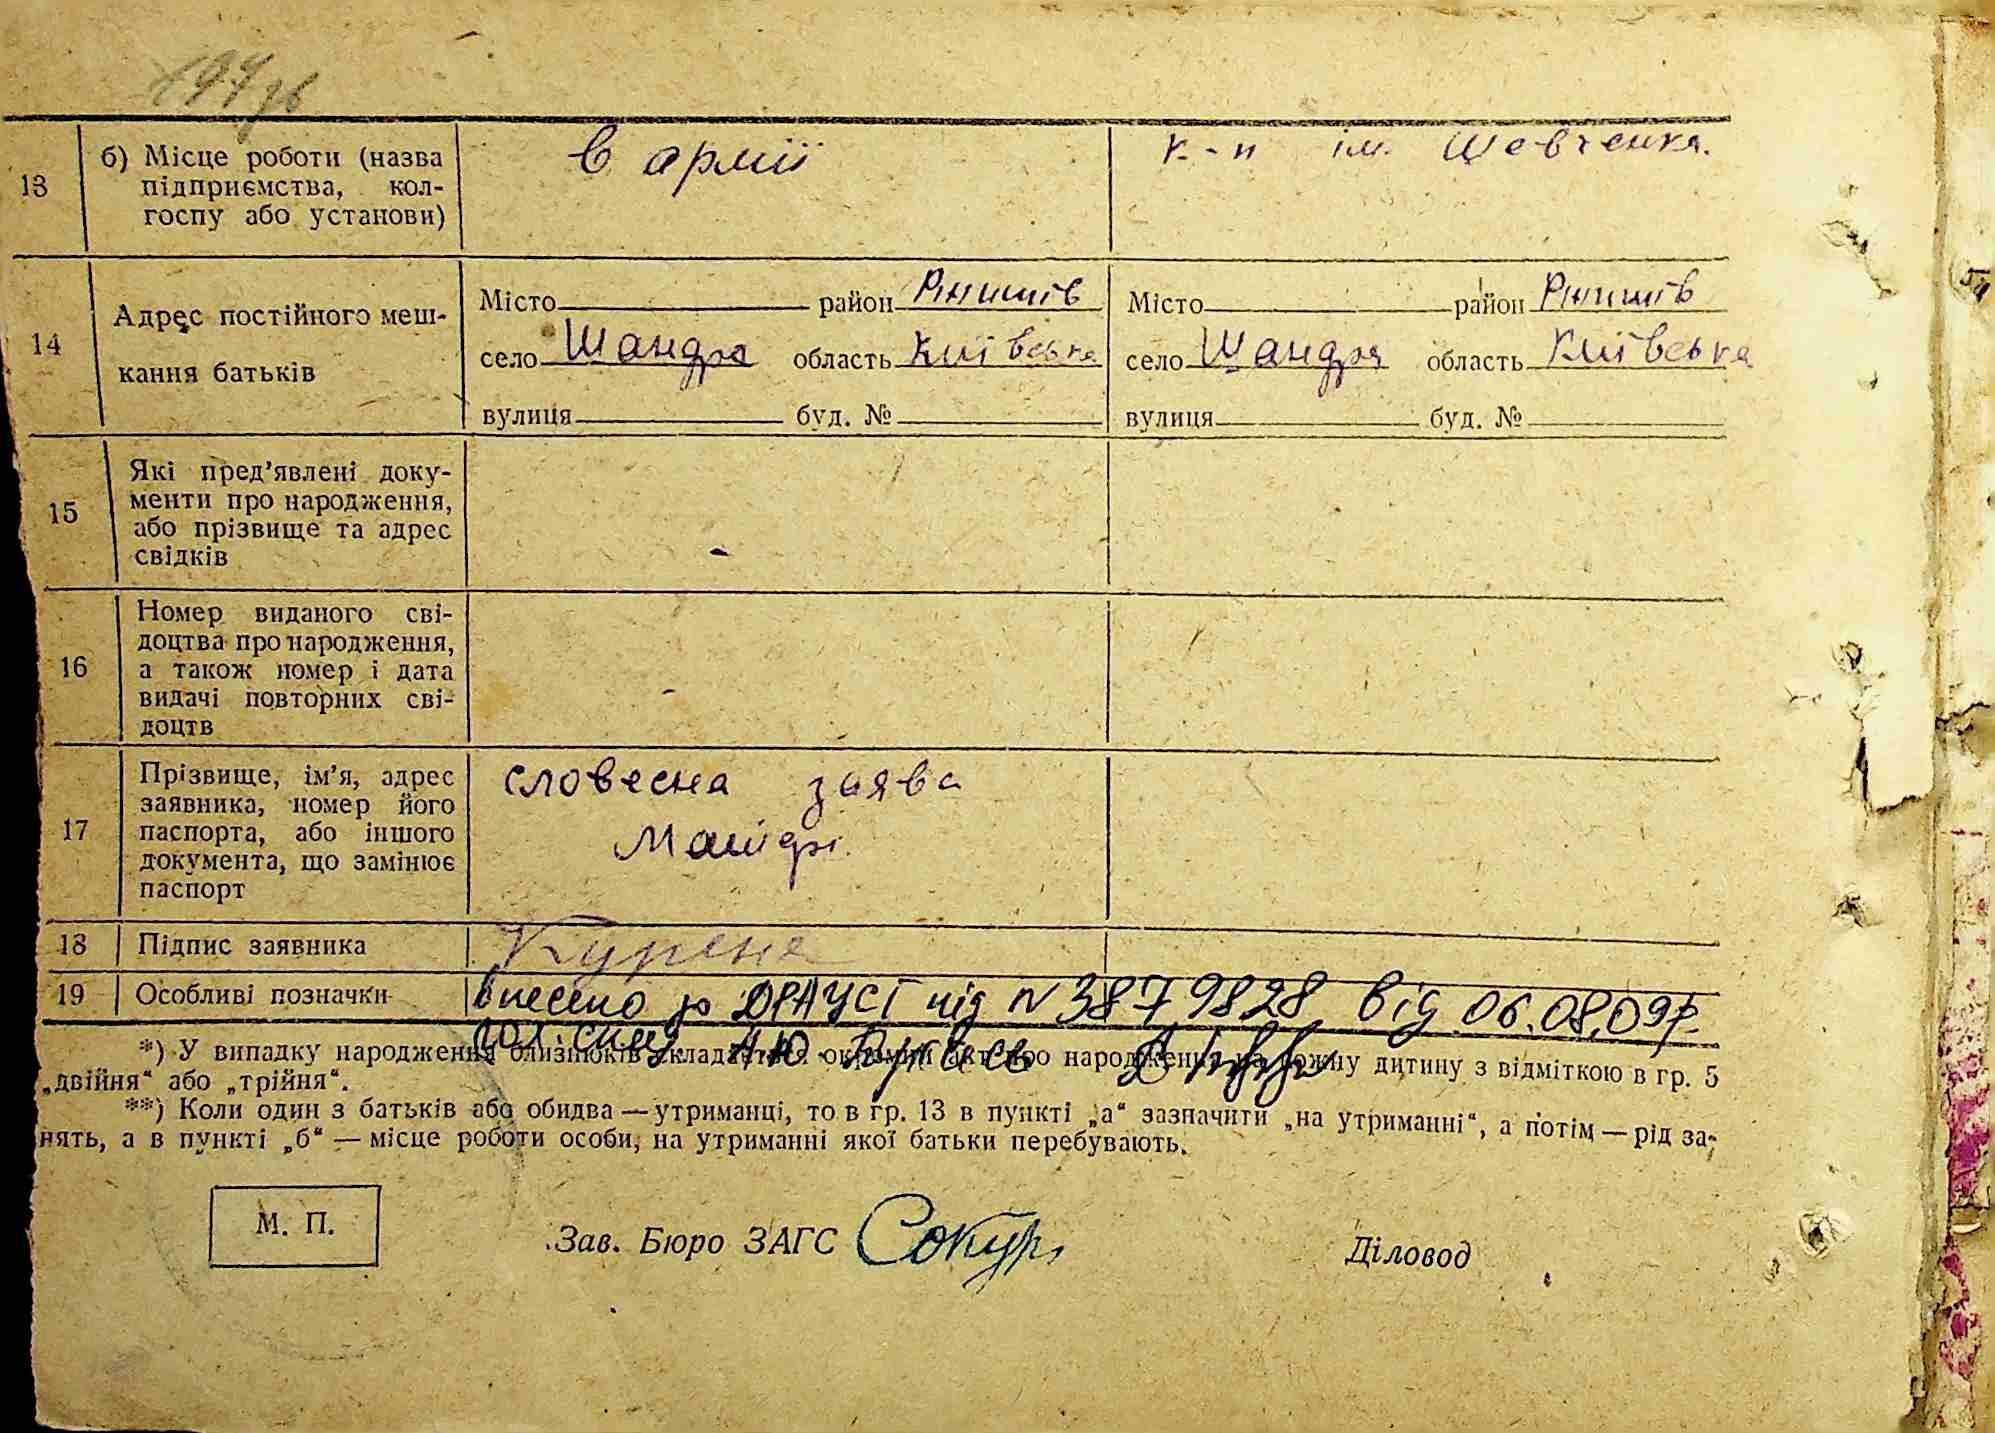 13
б) Місце роботи (назва
підприємства, кол-
госпу або установи)
в армії
к-п ім. Шевченка.
14
Адрес постійного меш-
кання батьків
Місто район Ржищів
село Шандра область Київська
вулиця буд. №
Місто район Ржищів
село Шандра область Київська
вулиця буд. №
15
Які пред'явлені доку-
менти про народження,
або прізвище та адрес
свідків
16
Номер виданого сві-
доцтва про народження,
а також номер і дата
видачі повторних сві-
доцтв
17
Прізвище, ім'я, адрес
заявника, номер його
паспорта, або іншого
документа, що замінює
паспорт
словесна заява
Матері
18 Підпис заявника
19 Особливі позначки
внесено до ДРАЦСГ під N 3879828 від 06.08.09р.
*) У випадку народження близнюків складається окремий акт про народження на кожну дитину з відміткою в гр. 5
„двійня“ або „трійня“.
**) Коли один з батьків або обидва — утриманці, то в гр. 13 в пункті „а“ зазначити „на утриманні“, а потім — рід за-
нять, а в пункті „б“ — місце роботи особи, на утриманні якої батьки перебувають.
М. П.
Зав. Бюро ЗАГС
Діловод